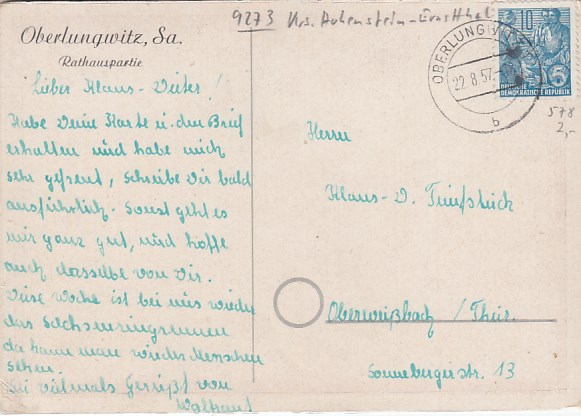 9273 Krs. Hohenstein-Ernstthal
Oberlungwitz, Sa.
Rathauspartie
Lieber Klaus-Dieter!
Habe Deine Karte u. den Brief
erhalten und habe mich
sehr gefreut, schreibe Dir bald
ausführlich. Sonst geht es
mir ganz gut, und hoffe
auch dasselbe von Dir.
Diese Woche ist bei uns wieder
das Sachsenringrennen
da kann man wieder Menschen
sehen.
Sei vielmals Gegrüßt von
OBERLUNGWITZ
22.8.57.
b
10
DEUTSCHE
DEMOKRATISCHE REPUBLIK
5
578
2,-
Herrn
Klaus-D. Fünfstück
Oberweißbach / Thür.
Sonnebergerstr. 13